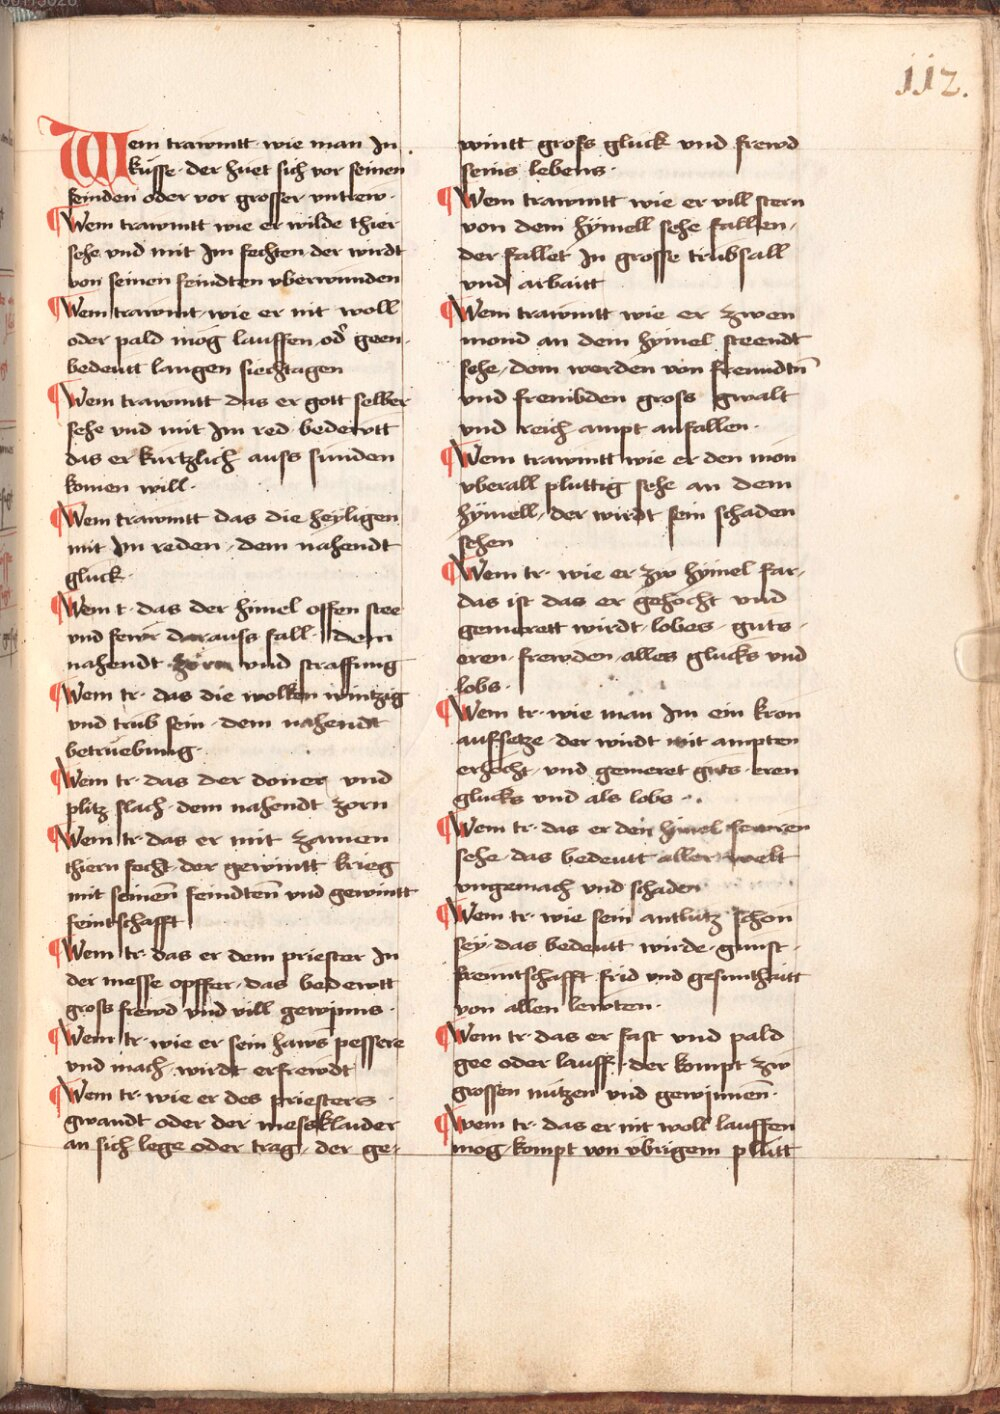 112.
Wem trawmtt wie man In
küsse · der huet sich vor seinen
feinden oder vor grosser untrew ·
¶ Wem trawmtt wie er wilde thier
sehe vnd mit Im fechten der wirdt
von seinen feindten vberwunden
¶ Wem trawmt · wie er nit woll
oder pald mög lauffen, od' geen ·
bedeutt langen siechtagen
¶ Wem trawmtt das er gott selber
sehe vnd mit Im red · bedewtt
das er kurtzlich auss sunden
komen will ·
¶ Wem trawmtt das die heyligen
mit Im reden, dem nahendt
gluck ·
¶ Wem t · das der himel offen stee
vnd fewr darauss fall · dem
nahendt zorn vnd straffung
¶ Wem tr · das die wolken wintzig
vnd trüb sein · dem nahendt
betruebung ·
¶ Wem tr · das der doner vnd
plitz slach · dem nahendt zorn
¶ Wem tr · das er mit zamen
thiern fecht · der gewintt krieg
mit seinen̄ feindten̄ vnd gewintt
feintschafft
¶ Wem tr · das er dem priester In
der messe opffer, das bedewtt
gross frewd vnd vill gewinns ·
¶ Wem tr · wie er sein haws pessere
vnd mach, wirdt erfrewdt
¶ Wem tr · wie er des priesters
gwandt oder der messklaider
an sich lege oder trag, der ge-
wintt gross gluck vnd frewd
seins lebens ·
¶ Wem trawmtt wie er vill stern
von dem hymell sehe fallen,
der fallet In grosse trübsall
vnd arbaitt
¶ Wem trawmtt wie er zwen
mond an dem hymel steendt
sehe, dem werden von freundtn̄
vnd frembden gross gwalt
vnd reich ampt anfallen ·
¶ Wem trawmtt wie er den mon
vberall pluttig sehe an dem
hymell, der wirdt sein schaden
sehen
¶ Wem tr · wie er zw hymel far,
das ist das er gehöcht vnd
gemerett wirdt · lobes · guts ·
eren · frewden · alles glucks vnd
lobs ·
¶ Wem tr · wie man Im ein kron
aufsetze · der wirdt mit ampten
erhöcht, vnd gemeret guts eren
glucks vnd als lobs ·
¶ Wem tr · das er den himel fewren
sehe · das bedeutt aller welt
vngemach vnd schaden
¶ Wem tr · wie sein antlütz schön
sey · das bedeutt wirde · gunst ·
freuntschafft frid vnd gesunthaitt
von allen lewten ·
¶ Wem tr · das er fast vnd pald
gee oder lauff · der kompt zw
grossen nützen vnd gewinnen̄ ·
¶ Wem tr · das er nit woll lauffen
mog · kompt von vbrigem plutt